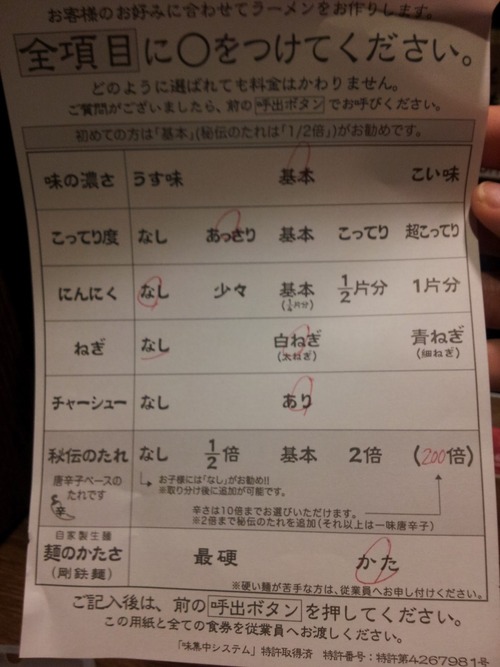 お客様のお好みに合わせてラーメンをお作りします。
全項目に○をつけてください。
どのように選ばれても料金はかわりません。
ご質問がございましたら、前の呼出ボタンでお呼びください。
初めての方は「基本」(秘伝のたれは「1/2倍」)がお勧めです。
味の濃さ うす味 基本 こい味
こってり度 なし あっさり 基本 こってり 超こってり
にんにく なし 少々 基本 1/2片分 1片分
(1/4片分)
ねぎ なし 白ねぎ 青ねぎ
(太ねぎ) (細ねぎ)
チャーシュー なし あり
秘伝のたれ なし 1/2倍 基本 2倍 (200倍)
唐辛子ベースの
たれです
辛
お子様には「なし」がお勧め!!
※取り分け後に追加が可能です。
辛さは10倍までお選びいただけます。
※2倍まで秘伝のたれを追加(それ以上は一味唐辛子)
自家製生麺
麺のかたさ 最硬 かた
(剛鉄麺)
※硬い麺が苦手な方は、従業員へお申し付けください。
ご記入後は、前の呼出ボタンを押してください。
この用紙と全ての食券を従業員へお渡しください。
「味集中システム」特許取得済 特許番号:特許第4267981号